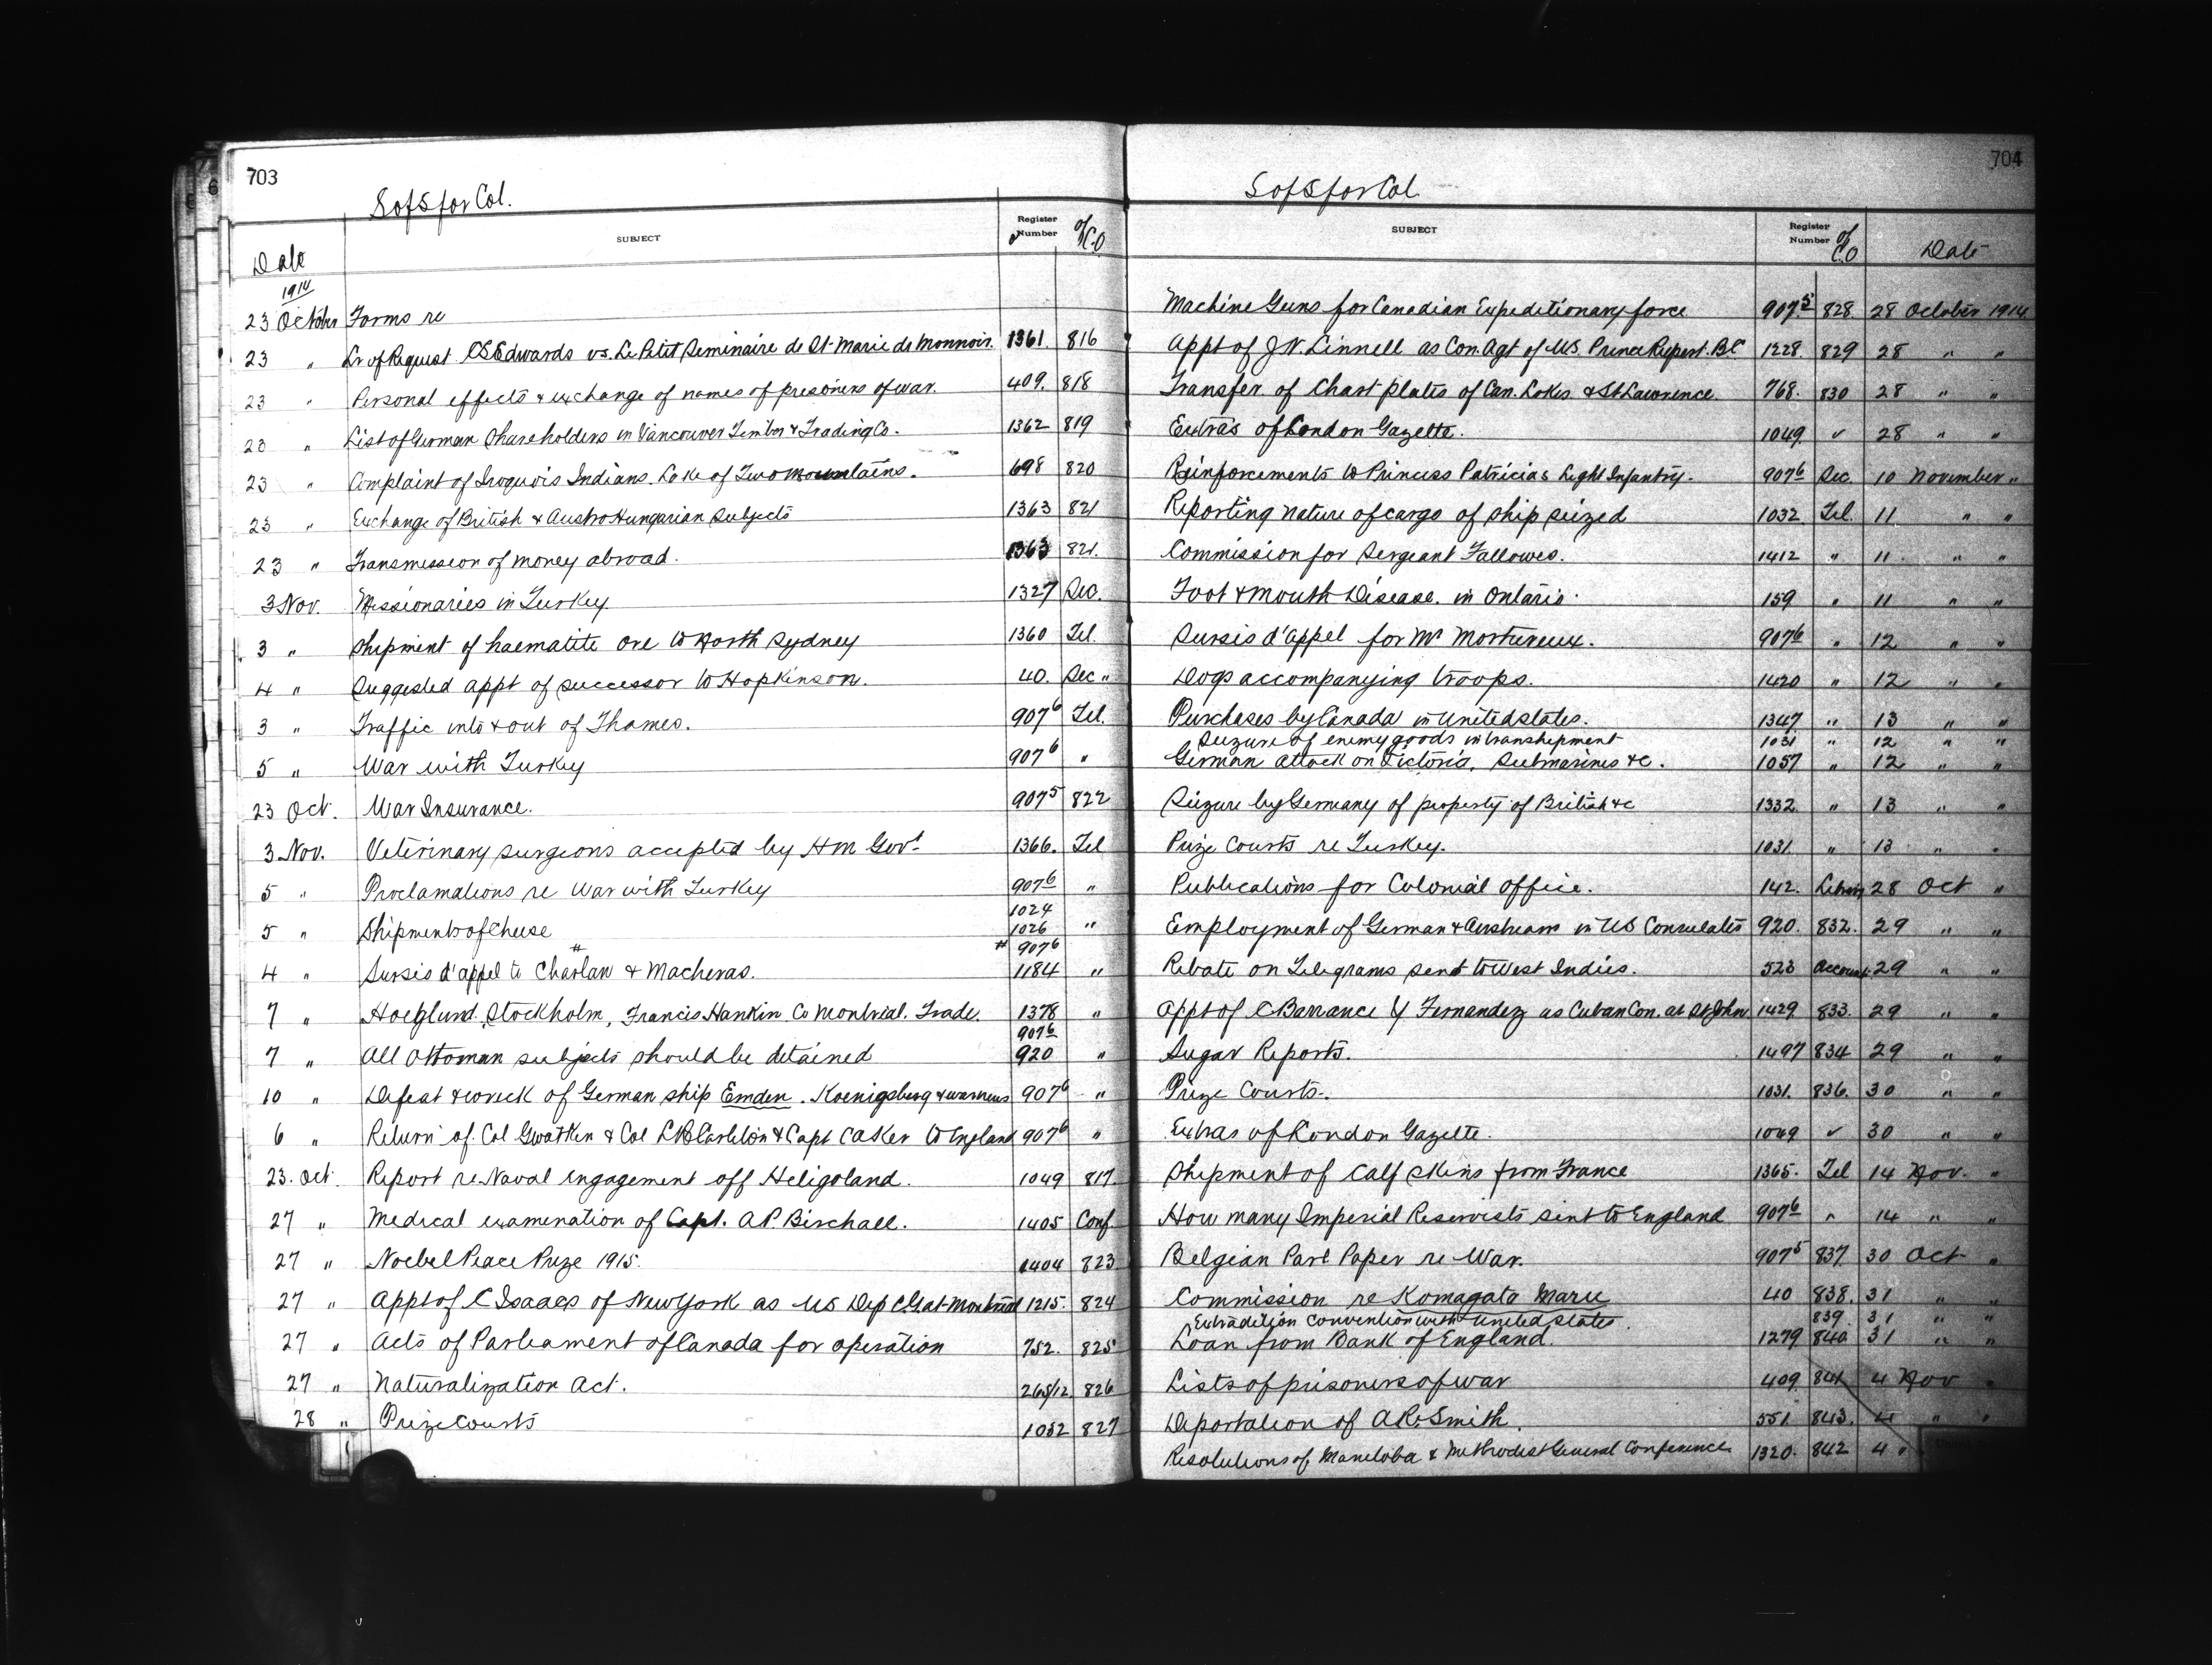 703
S of S for Col.
Date SUBJECT Register Number of C.O
1914
23 October Forms re
23 " Lr of Request C S Edwards vs. Le Petit Seminaire de St-Marie de Monnoir. 1361 816
23 " Personal effects & exchange of names of prisoners of war. 409. 818
23 " List of German Shareholders in Vancouver Timber & Trading Co. 1362 819
23 " Complaint of Iroquois Indians. Lake of Two Mountains. 698 820
23 " Exchange of British & Austro Hungarian Subjects 1363 821
23 " Transmission of money abroad. 1363 821.
3 Nov. Missionaries in Turkey 1327 Sec.
3 " Shipment of haematite ore to North Sydney 1360 Tel.
4 " Suggested appt of successor to Hopkinson. 40. Sec "
3 " Traffic into & out of Thames. 907⁶ Tel.
5 " War with Turkey 907⁶ "
23 Oct. War Insurance. 907⁵ 822
3 Nov. Veterinary surgeons accepted by H M Govt 1366. Tel
5 " Proclamations re War with Turkey 907⁶ "
5 " Shipments of Cheese 1024 1026 "
4 " Sursis d'appel to Charlan # & Macheras. # 907⁶ 1184 "
7 " Hoeglund. Stockholm, Francis Hankin Co Montreal. Trade. 1378 "
7 " All Ottoman subjects should be detained 907⁶ 920 "
10 " Defeat & wreck of German ship Emden. Koenigsberg & 907⁶ "
6 " Return of Col Gwatkin & Col Carleton & Capt to England 907⁶ "
23. Oct. Report re Naval engagement off Heligoland. 1049 817.
27 " Medical examination of Capt. A P. Birchall. 1405 Conf.
27 " Noebel Peace Prize 1915. 1404 823
27 " Appt of C Isaacs of New York as US Dep C G at Montreal 1215. 824
27 " Acts of Parliament of Canada for operation 752. 825
27 " Naturalization Act. 265/12 826
28 " Prize Courts 1032 827
704
S of S for Col
SUBJECT Register Number of C.O Date
Machine Guns for Canadian Expeditionary force 907.⁵ 828. 28 October 1914
Appt of J N. Linnell as Con. Agt of U.S. Prince Rupert. B C 1228. 829 28 " "
Transfer of Chart plates of Can. Lakes & St Lawrence 768. 830 28 " "
Extras of London Gazette. 1049. ✓ 28 " "
Reinforcements to Princess Patricias Light Infantry. 907⁶ Sec. 10 November "
Reporting nature of cargo of ship seized 1032 Tel. 11 " "
Commission for Sergeant Fallowes. 1412 " 11. " "
Foot & Mouth Disease. in Ontario. 159 " 11 " "
Sursis d'appel for Mr Mortureux. 907⁶ " 12 " "
Dogs accompanying troops. 1420 " 12 " "
Purchases by Canada in United States. 1347 " 13 " "
Seizure of enemy goods in transhipment 1031 " 12 " "
German attack on Victoria, Submarines &c. 1057 " 12 " "
Seizure by Germany of property of British &c 1332 " 13 " "
Prize Courts re Turkey. 1031. " 13 " "
Publications for Colonial Office. 142. Library 28 Oct "
Employment of German & Austrians in US Consulates 920. 832. 29 " "
Rebate on Telegrams sent to West Indies. 523 Account. 29 " "
Appt of C Barrance Y Fernandez as Cuban Con. at St John 1429. 833. 29 " "
Sugar Reports. 1497 834 29 " "
Prize Courts. 1031. 836. 30 " "
Extras of London Gazette. 1049 ✓ 30 " "
Shipment of Calf skins from France 1365. Tel 14 Nov. "
How many Imperial Reservists sent to England 907⁶ " 14 " "
Belgian Parl Paper re War. 907⁵ 837. 30 Oct "
Commission re Komagata Maru 40 838. 31 " "
Extradition Convention with United States. 839. 31 " "
Loan from Bank of England. 1279 840 31 " "
Lists of prisoners of war 409. 841 4 Nov "
Deportation of A R. Smith. 551. 843. 4 " "
Resolutions of Manitoba & Methodist General Conference 1320. 842 4 "